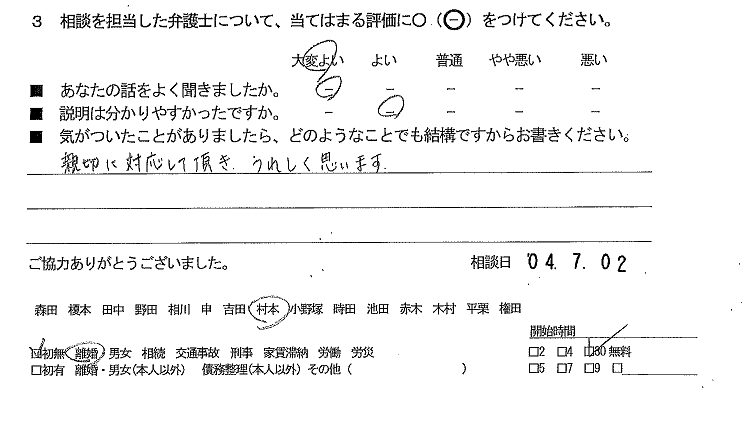 3 相談を担当した弁護士について、当てはまる評価に○（㊀）をつけてください。
大変よい よい 普通 やや悪い 悪い
■ あなたの話をよく聞きましたか。 － － － － －
■ 説明は分かりやすかったですか。 － － － － －
■ 気がついたことがありましたら、どのようなことでも結構ですからお書きください。
親切に対応して頂き、うれしく思います。
ご協力ありがとうございました。 相談日 '04. 7. 02
森田 榎本 田中 野田 相川 申 吉田 村本 小野塚 時田 池田 赤木 木村 平栗 権田
開始時間
□初無 離婚・男女 相続 交通事故 刑事 家賃滞納 労働 労災 □2 □4 □30 無料
□初有 離婚・男女(本人以外) 債務整理(本人以外) その他 ( ) □5 □7 □9 □